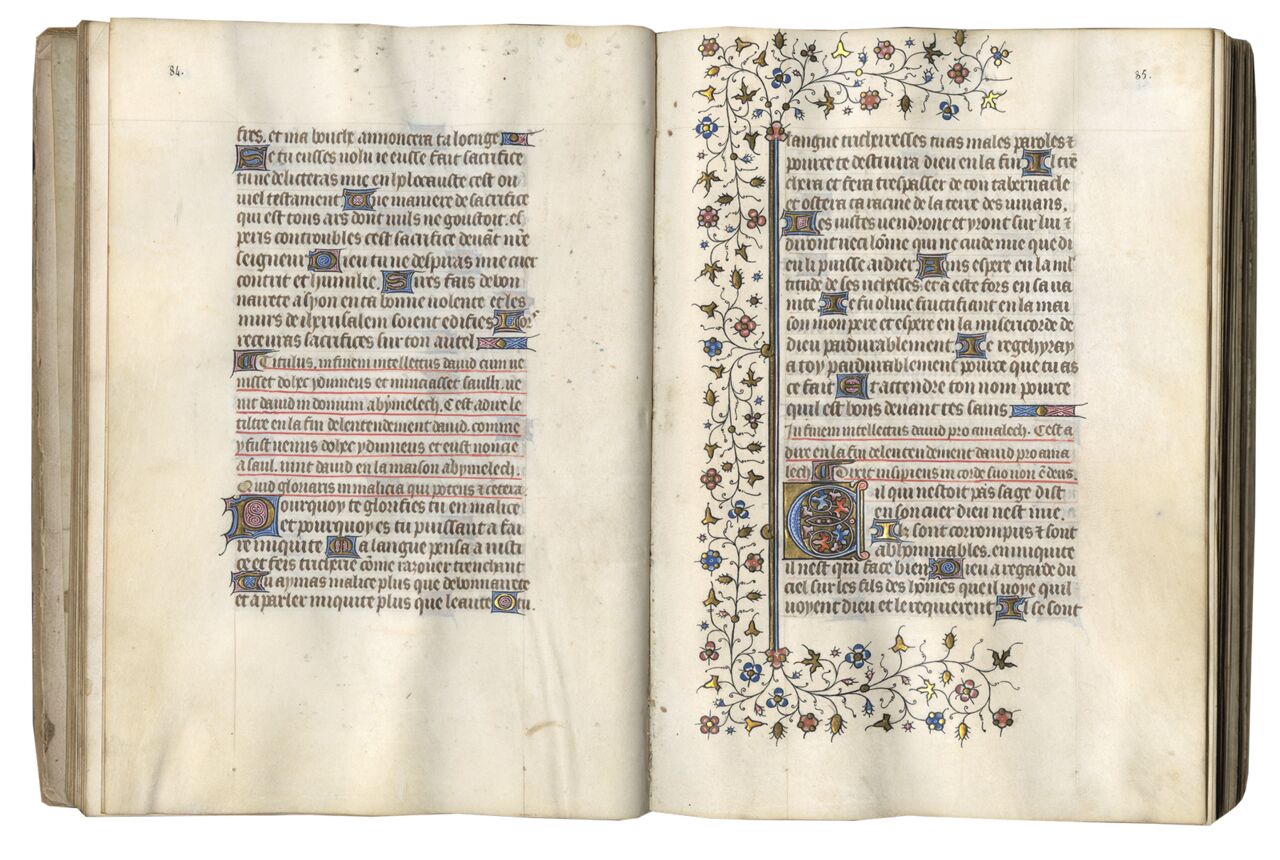 84.
fres. et ma bouche annoncera ta loenge
Se tu eusses volu ie eusse fait sacrifice
tu ne deliteras mie en holocauste cest ou
viel testament Une maniere de sacrifice
qui est tous ars dont nuls ne goustoit. es
peris controubles cest sacrifice deuāt nr̄e
seigneur Dieu tu ne despiras mie cuer
contrit et humilie. Sires fais debon
nairete a syon en ta bonne volente et les
murs de iherusalem soient edifies Lor
receuras sacrifices sur ton autel
Titulus. in finem intellectus dauid cum ve
nisset dohec ydumeus et nunciasset saulh. ve
nit dauid in domum abymelech. Cest adire le
tiltre en la fin delentendement dauid. comme
y fust venus dohec ydumeus et eust noncie
a saul. vint dauid en la maison abymelech.
Quid gloriaris in malicia qui potens et cetera
Pourquoy te glorifies tu en malice
et pourquoy es tu puissant a fai
re iniquite Ta langue pensa a iniusti
ce et feis tricherie cōme rasouer trenchant
Tu aymas malice plus que debonnairete
et a parler iniquite plus que leaute O tu.
85.
langue tricheresses tu as males paroles et
pource te destruira dieu en la fin Il trē
chera et fera trespasser de ton tabernacle
et ostera ta racine de la terre des viuans.
Les iustes vendront et yront sur lui et
diront veci lōme qui ne cuide mie que di
eu li puisse aidier Ains espere en la ml
titude de ses richesses et a este fors en sa va
nite Ie fu oliue fructifiant en la mai
son mon pere et espere en la misericorde de
dieu pardurablement Ie regehyray
a toy pardurablement pource que tu as
ce fait Et attendre ton nom pource
quil est bons deuant tes sains
In finem intellectus dauid pro amalech. Cest a
dire en la fin delentendement dauid pro ama
lech Dixit insipiens in corde suo non ē deus.
Cil qui nestoit pas sage dist
en son cuer dieu nest mie.
Ilz sont corrompus et sont
abhominables. en iniquite
il nest qui face bien Dieu a regarde du
ciel sur les fils des hōmes que il voye quil
voyent dieu et le requierent Il se sont